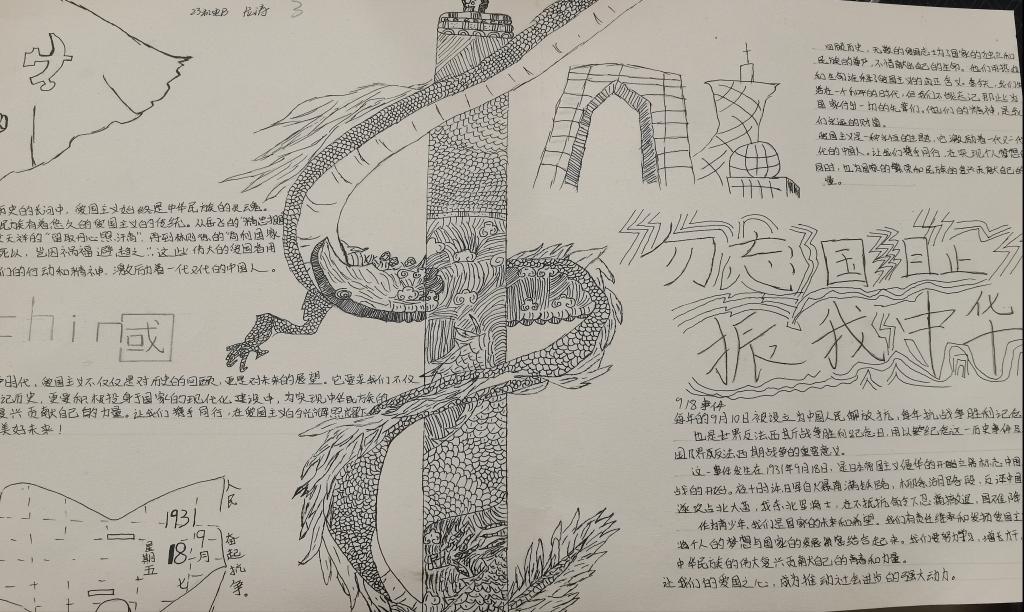 23机电B
3
历史的长河中，爱国主义始终是中华民族的灵魂。
民族有着悠久的爱国主义的传统。从岳飞的“精忠报国
文天祥的“留取丹心照汗青”，再到林则徐的“苟利国家
死以，岂因祸福避趋之”，这些伟大的爱国者用
们的行动和精神，激励着一代又代的中国人。
chin国
时代，爱国主义不仅仅是对历史的回顾，更是对未来的展望。它要求我们不仅
记历史，更要积极投身于国家的现代化建设中，为实现中华民族的
复兴贡献自己的力量。让我们携手同行，在爱国主义的光辉照耀
美好未来！
人民
奋起抗争。
1931
9月
18
星期五
七
回顾历史，无数的爱国志士为了国家的独立和
民族的尊严，不惜献出自己的生命。他们用热血
和生命诠释了爱国主义的真正含义。今天，我们
着在一个和平的时代，但我们不能忘记那些为
国家付出一切的先辈们，他们的精神，是我
们永远的财富。
爱国主义是一种永恒的主题，它激励着一代又一代
代的中国人。让我们携手同行，在实现个人梦想的
同时，也为国家的繁荣和民族的复兴贡献自己的
量。
勿忘国耻
振我中华
918事件
每年的9月10日被设立为中国人民解放抗，每年抗战争胜利记念
也是世界反法西斯战争胜利纪念日，用以纪念这一历史事件及
国世界反法西斯战争的重要意义。
这一事件发生在1931年9月18日，是日本帝国主义侵华的开始
战的开始。
任青少年，我们是国家的未来和希望。我们有责任继承和发扬爱国主
将个人的梦想与国家的发展紧密结合起来。我们要努力学习，增长才干，
中华民族的伟大复兴贡献自己的青春和力量。
让我们的爱国之心，成为推动社会进步的强大动力。